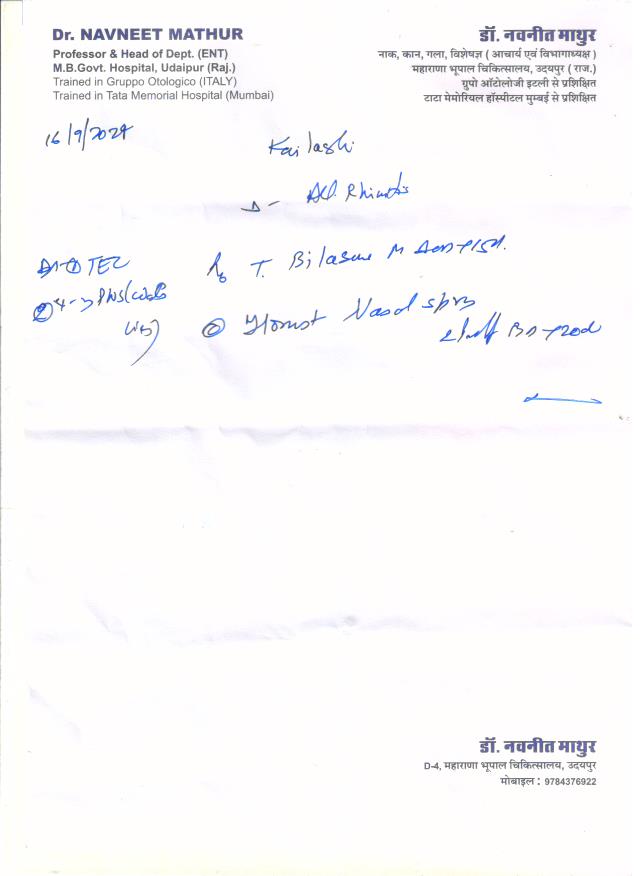 Dr. NAVNEET MATHUR
Professor & Head of Dept. (ENT)
M.B.Govt. Hospital, Udaipur (Raj.)
Trained in Gruppo Otologico (ITALY)
Trained in Tata Memorial Hospital (Mumbai)
डॉ. नवनीत माथुर
नाक, कान, गला, विशेषज्ञ ( आचार्य एवं विभागाध्यक्ष )
महाराणा भूपाल चिकित्सालय, उदयपुर ( राज.)
ग्रुपो ऑटोलोजी इटली से प्रशिक्षित
टाटा मेमोरियल हॉस्पीटल मुम्बई से प्रशिक्षित
16/9/2024
Kailash
Rhinitis
TEC
T. M
PNS
② Nasal
डॉ. नवनीत माथुर
D-4, महाराणा भूपाल चिकित्सालय, उदयपुर
मोबाइल : 9784376922